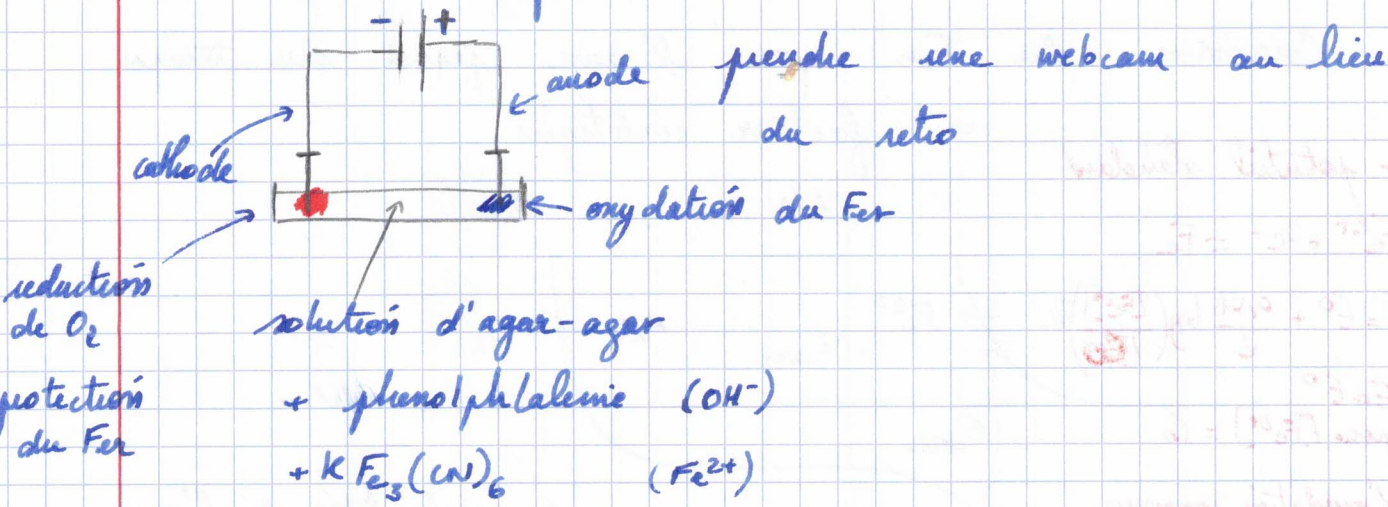 - +
anode prendre une webcam au lieu
du retro
cathode
oxydation du Fer
reduction
de O2
protection
du Fer
solution d'agar-agar
+ phenolphtaleine (OH-)
+ K Fe3(CN)6 (Fe2+)